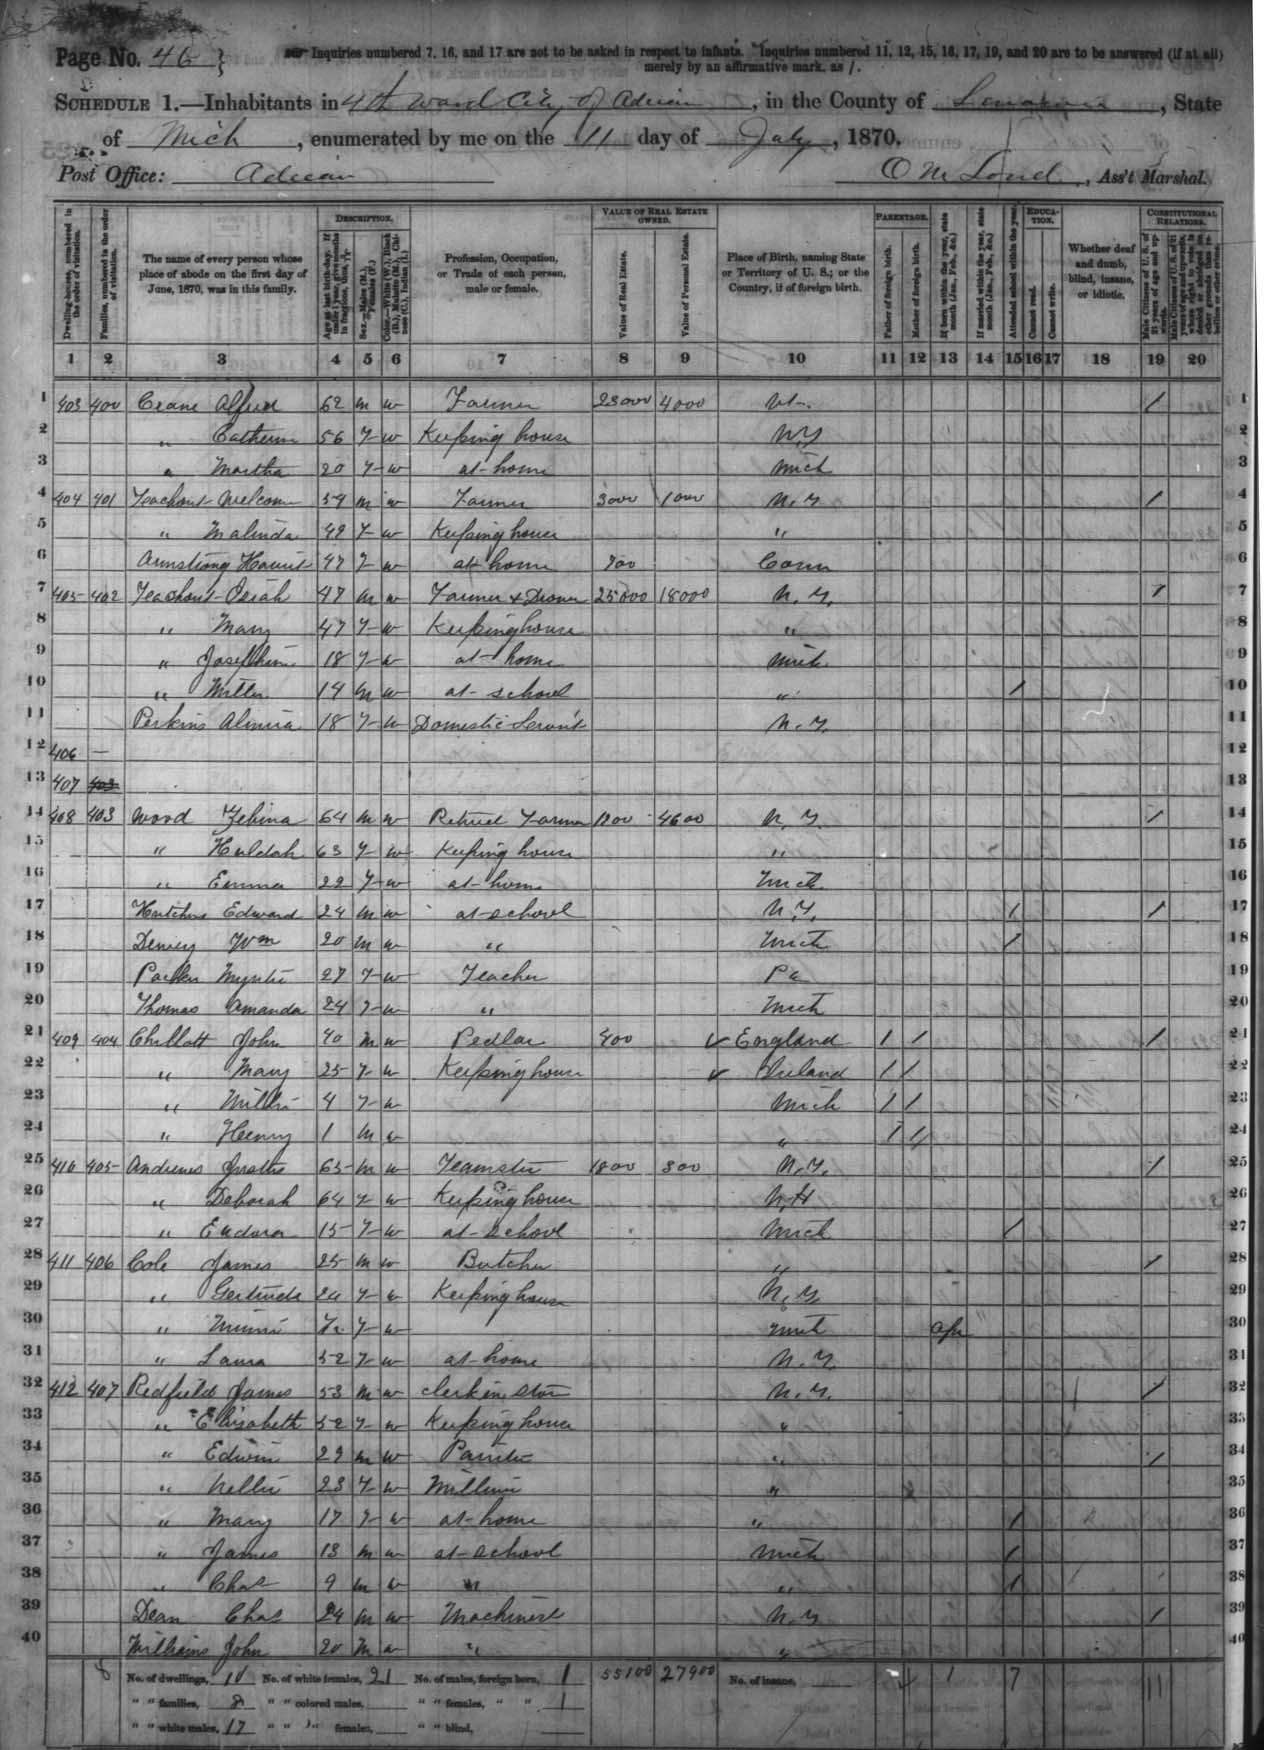 Page No. 46
Inquiries numbered 7, 16, and 17 are not to be asked in respect to infants. Inquiries numbered 11, 12, 15, 16, 17, 19, and 20 are to be answered (if at all)
merely by an affirmative mark, as /.
SCHEDULE 1.—Inhabitants in 4th Ward City of Adrian, in the County of Lenawee, State
of Mich, enumerated by me on the 11 day of July, 1870.
Post Office: Adrian O M Loud, Ass't Marshal.
DESCRIPTION. VALUE OF REAL ESTATE OWNED. PARENTAGE. EDUCATION. CONSTITUTIONAL RELATIONS.
Dwelling-houses, numbered in the order of visitation.
Families, numbered in the order of visitation.
The name of every person whose place of abode on the first day of June, 1870, was in this family.
Profession, Occupation, or Trade of each person, male or female.
Value of Real Estate.
Value of Personal Estate.
Place of Birth, naming State or Territory of U. S.; or the Country, if of foreign birth.
Father of foreign birth.
Mother of foreign birth.
If born within the year, state month (Jan., Feb., &c.)
If married within the year, state month (Jan., Feb., &c.)
Attended school within the year.
Cannot read.
Cannot write.
Whether deaf and dumb, blind, insane, or idiotic.
1 2 3 4 5 6 7 8 9 10 11 12 13 14 15 16 17 18 19 20
1 403 400 Crane Alfred 62 m w Farmer 23000 4000 Vt. / 1
2 " Catherine 56 F w Keeping house N.Y 2
3 " Martha 20 F w at home Mich 3
4 404 401 Teachout Welcom 54 m w Farmer 3000 1000 N.Y / 4
5 " Malinda 49 F w Keeping house " 5
6 Armstrong Harriet 47 F w at home 700 Conn 6
7 405 402 Teachout 47 m w Farmer & Drover 25000 18000 N.Y. / 7
8 " Mary 47 F w Keeping house " 8
9 " Josephine 18 F w at home Mich. 9
10 " 14 m w at school " / 10
11 Perkins Almira 18 F w Domestic Servant N.Y. 11
12 406 — 12
13 407 403 13
14 408 403 Wood Zebina 64 m w Retired Farmer 4600 N.Y. / 14
15 " Huldah 63 F w Keeping house " 15
16 " Emma 22 F w at home Mich 16
17 Edward 24 m w at school N.Y. / / 17
18 Dewey Wm 20 m w " Mich / 18
19 27 F w Teacher Pa 19
20 Thomas Amanda 24 F w " Mich 20
21 409 404 Chillott John 40 m w Pedlar 400 England / / / 21
22 " Mary 25 F w Keeping house Ireland / / 22
23 " Millie 4 F w Mich / / 23
24 " Henry 1 m w " / / 24
25 410 405 Andrews 65 m w Teamster 1800 300 N.Y. / 25
26 " Deborah 64 F w Keeping house N.H 26
27 " Eudora 15 F w at school Mich / 27
28 411 406 Cole James 25 m w Butcher " / 28
29 " Gertrude 24 F w Keeping house N.Y 29
30 " Minnie F w Mich Apr 30
31 " Laura 52 F w at home N.Y. 31
32 412 407 Redfield James 53 m w clerk in store N.Y. / 32
33 " Elisabeth 52 F w Keeping house " 33
34 " Edwin 29 m w Painter " / 34
35 " Nellie 23 F w Milliner " 35
36 " Mary 17 F w at home " / 36
37 " James 13 m w at school Mich / 37
38 " Chas 9 m w " " / 38
39 Dean Chas 24 m w Machinist N.Y / 39
40 Williams John 20 m w " " 40
No. of dwellings, 10 No. of white females, 21 No. of males, foreign born, 1 55100 27900 No. of insane, 1 7 11
" " families, 8 " " colored males, " " females, " " 1
" " white males, 17 " " " females, " " blind,